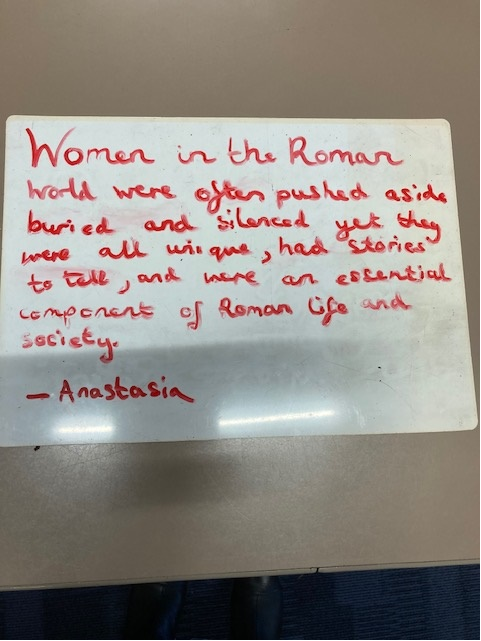 Women in the Roman
World were often pushed aside
buried and silenced yet they
were all unique, had stories
to tell, and were an essential
component of Roman life and
society.
— Anastasia